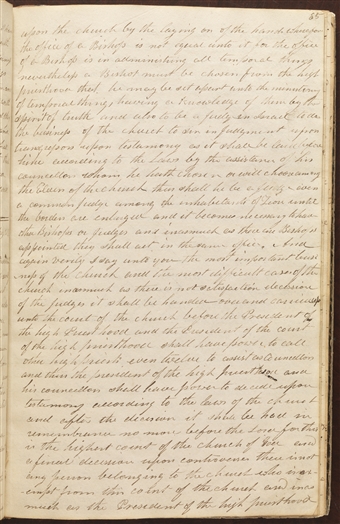 85
upon the church by the laying on of the hands wherefore
the office of a Bishop is not equal unto it for the office
of a Bishop is in administering all temporal things
nevertheless a Bishop must be chosen from the high
priesthood that he may be set apart unto the ministering
of temporal things having a knowledge of them by the
spirit of truth and also to be a judge in Israel to do
the business of the church to sit in judgment upon
transgressors upon testamony as it shall be laid before
him according to the laws by the assistance of his
councellors whom he hath chosen or will choose among
the Elders of the church thus shall he be a judge even
a common judge among the inhabitants of Zion until
the borders are enlarged and it becomes necessary to have
other Bishops or judges and inasmuch as there are Bishops
appointed they shall act in the same office. And
again verily I say unto you the most important busi
ness of the church and the most difficult cases of the
church inasmuch as there is not satisfaction decision
of the judges it shall be handed over and carried up
unto the court of the church before the President of
the high Priesthood and the President of the court
of the high priesthood shall have power to call
other high priests even twelve to assist as councellors
and thus the president of the high priesthood and
his councellors shall have power to decide upon
testamony according to the laws of the church
and after the decision it shall be had in
remembrance no more before the Lord for this
is the highest court of the church of God and
a final decision upon controversies there is not
any person belonging to the church who is ex
empt from this court of the church and inas
much as the President of the high priesthood